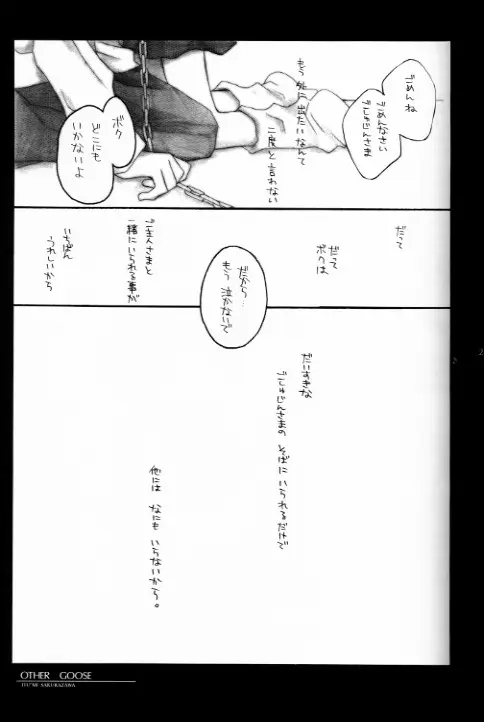 ごめんね
ごめんなさい
ごしゅじんさま
もう 外に 出たい なんて
二度 と 言わない
ボク
どこにも
いかないよ
だって
だって
ボクは
ご主人さまと
一緒にいられる事が
いちばん
うれしいから
だから…
もう 泣かないで
だいすきな
ごしゅじんさまの そばに いられるだけで
他には なにも いらないから。
OTHER GOOSE
ITUMI SAKURAZAWA
2